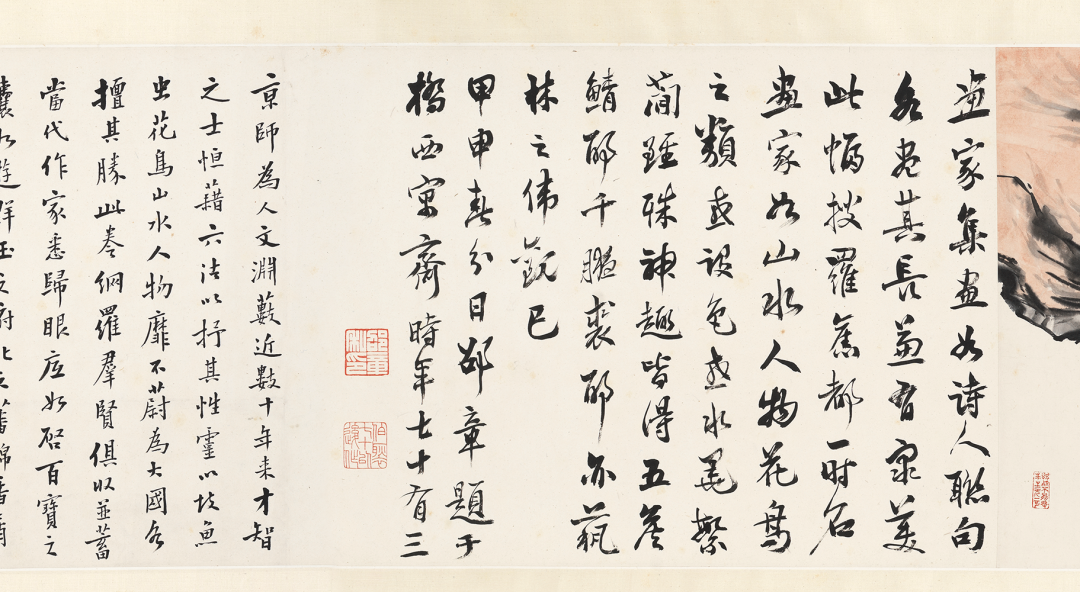 畫家集畫如诗人聯句
各盡其長並有衆美
此幅搜羅舊都一时名
畫家如山水人物花鳥
之類或設色或水墨繁
簡雖殊神趣皆得五侯
鯖耶千腋裘耶亦藝
林之偉觀已
甲申春分日邵章題于
橋西寓齋時年七十有三
京師為人文淵藪近數十年来才智
之士恒藉六法以抒其性靈以故魚
虫花鳥山水人物靡不蔚為大國各
擅其勝此卷網羅羣賢俱收並蓄
當代作家悉歸眼底如啓百寶之
囊如遊群玉之府